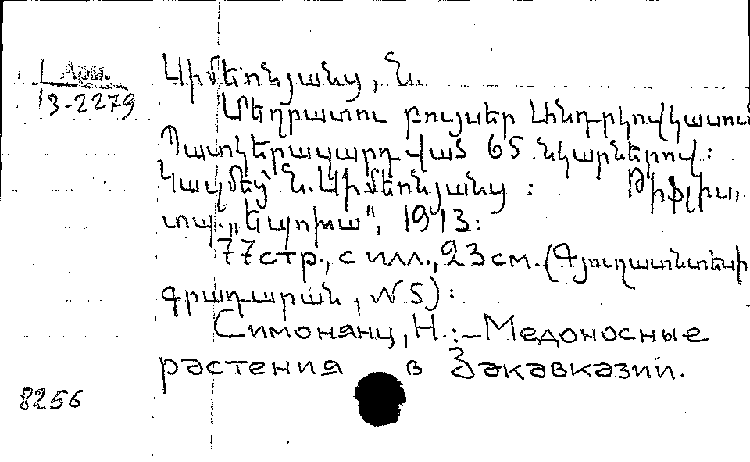 Арм.
3-2279
Սիմեոնյանց, Ն.
Մեղրատու բույսեր Անդրկովկասում
Պատկերազարդված 65 նկարներով:
Կազմեց Ն.Սիմեոնյանց: Թիֆլիս,
տպ. „Եպոխա", 1913:
77стр., с илл., 23см. (Գյուղատնտեսի
գրադարան, №5):
Симонянц, Н.:-Медоносные
растения в Закавказии.
8256